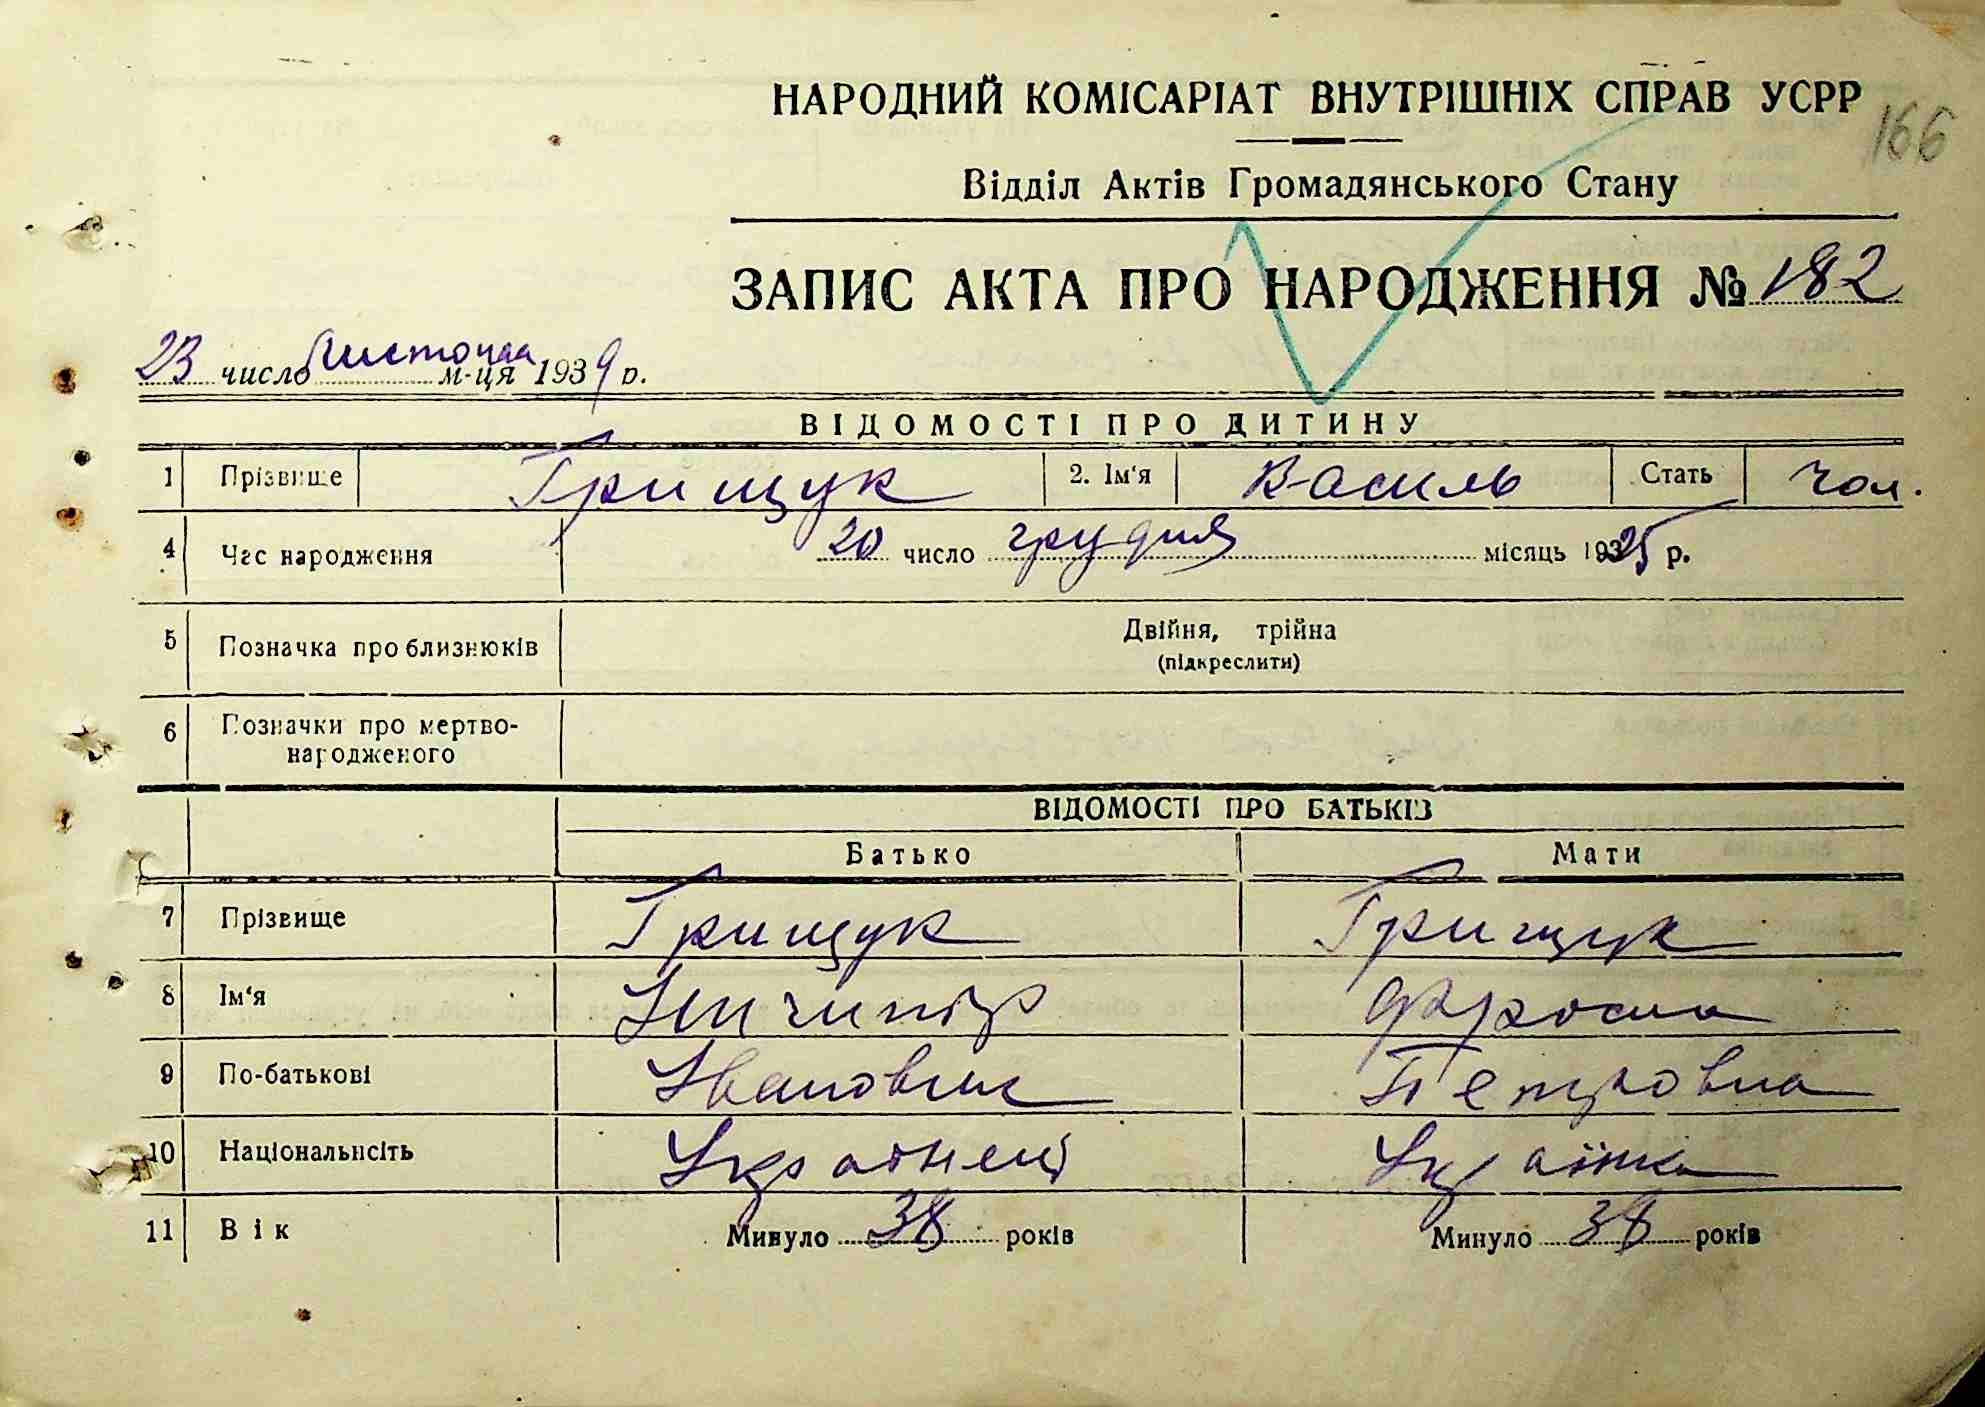 НАРОДНИЙ КОМІСАРІАТ ВНУТРІШНІХ СПРАВ УСРР
166
Відділ Актів Громадянського Стану
ЗАПИС АКТА ПРО НАРОДЖЕННЯ № 182
23 число Листопада м-ця 1939 р.
ВІДОМОСТІ ПРО ДИТИНУ
1 Прізвище Грищук 2. Ім'я Василь Стать чол.
4 Час народження 20 число грудня місяць 1925 р.
5 Позначка про близнюків Двійня, трійна
(підкреслити)
6 Позначки про мертво-
народженого
ВІДОМОСТІ ПРО БАТЬКІВ
Батько Мати
7 Прізвище Грищук Грищук
8 Ім'я Ничипір Фросина
9 По-батькові Іванович Петровна
10 Національність Українец Українка
11 Вік Минуло 38 років Минуло 38 років